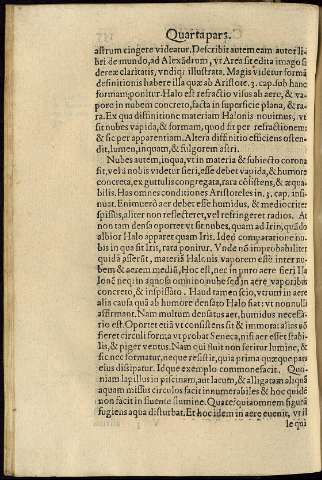 Quarta pars.
astrum cingere videatur. Describit autem eam autor li
bri de mundo, ad Alexādrum, vt Area sit edita imago si
dereæ claritatis, vndiq; illustrata. Magis videtur formā
definitionis habere illa quæ ab Aristote. 3. cap. sub hanc
formam ponitur. Halo est refractio visus ab aere, & va
pore in nubem concreto, facta in superficie plana, & ra-
ra. Ex qua difinitione materiam Halonis nouimus, vt
sit nubes vapida, & formam, quod fit per refractionem:
& sic per apparentiam. Altera diffinitio efficiens osten-
dit, lumen, inquam, & fulgorem astri.
Nubes autem, inqua, vt in materia & subiecto corona
sit, vel a nobis videtur fieri, esse debet vapida, & humore
concreta, ex guttulis congregata, rara cōsistens, & æqua-
bilis. Has omnes conditiones Aristoteles in. 3. cap. insi-
nuat. Enimuero aer debet esse humidus, & mediocriter
spissus, aliter non reflecteret, vel refringeret radios. At
non tam densa oportet vt sit nubes, quam ad Irin, quādo
albior Halo apparet, quam Iris. Ideò comparatione nu-
bis in qua fit Iris, rara ponitur. Vnde nō improbabiliter
quidā asserūt, materiā Halonis vaporem esse inter nu-
bem & aerem mediū, Hoc est, nec in puro aere fieri Ha
lonē neq; in agnosti omnino nube sed in aere, vaporibus
concreto, & inspissato. Haud tamen scio, vtrum in aere
alia causa quā ab humore densato Halo fiat: vt nonnulli
affirmant. Nam multum densatus aer, humidus necessa-
rio est. Oportet etiā vt consistens sit & immorat alias nō
fieret circuli forma vt probat Seneca, nisi aer esset stabi-
lis, & piger ventus. Nam qui fluit non feritur lumine, &
sic nec formatur, neque resistit, quia prima quæque pars
eius dissipatur. Idque exemplo commonefacit. Quo-
niam lapillus in piscinam, aut lacum, & alligatam aliquā
aquam missus circulos facit innumerabiles & hoc quidē
non facit in fluente flumine. Quare? quia omnem figurā
fugiens aqua disturbat. Et hoc idem in aere euenit, vt il
le qui